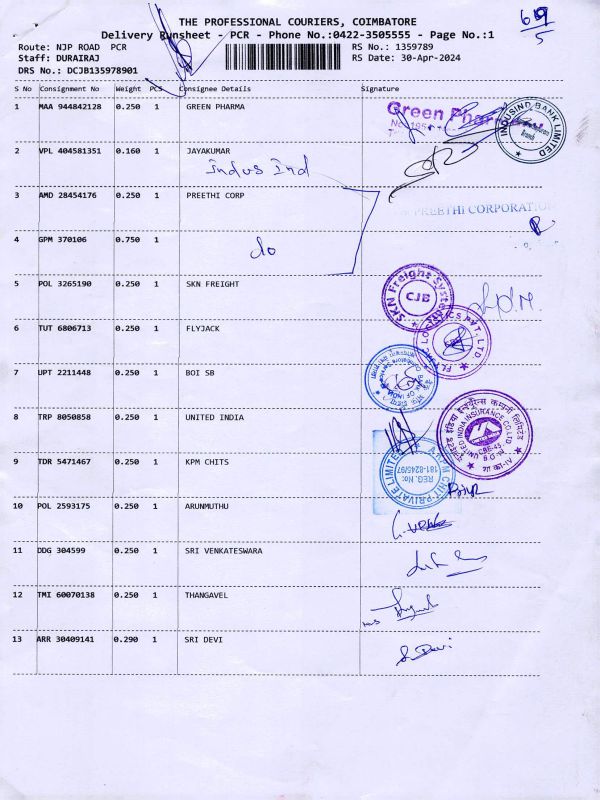 THE PROFESSIONAL COURIERS, COIMBATORE
Delivery Runsheet - PCR - Phone No.:0422-3505555 - Page No.:1
Route: NJP ROAD PCR
RS No.: 1359789
Staff: DURAIRAJ
RS Date: 30-Apr-2024
DRS No.: DCJB135978901
S No Consignment No Weight PCS Consignee Details Signature
1 MAA 944842128 0.250 1 GREEN PHARMA
Green
INDUSIND BANK LIMITED
2 VPL 404581351 0.160 1 JAYAKUMAR
Indus Ind
3 AMD 28454176 0.250 1 PREETHI CORP
PREETHI CORPORATION
4 GPM 370106 0.750 1
do
5 POL 3265190 0.250 1 SKN FREIGHT
SKN Freight Systems
CJB
6 TUT 6806713 0.250 1 FLYJACK
LOGISTICS PVT. LTD
7 UPT 2211448 0.250 1 BOI SB
BANK OF INDIA
8 TRP 8050858 0.250 1 UNITED INDIA
UNITED INDIA INSURANCE CO LTD
9 TDR 5471467 0.250 1 KPM CHITS
CHIT PRIVATE LIMITED
REG. No:
181-8245/97
10 POL 2593175 0.250 1 ARUNMUTHU
11 DDG 304599 0.250 1 SRI VENKATESWARA
12 TMI 60070138 0.250 1 THANGAVEL
13 ARR 30409141 0.290 1 SRI DEVI
S. Devi